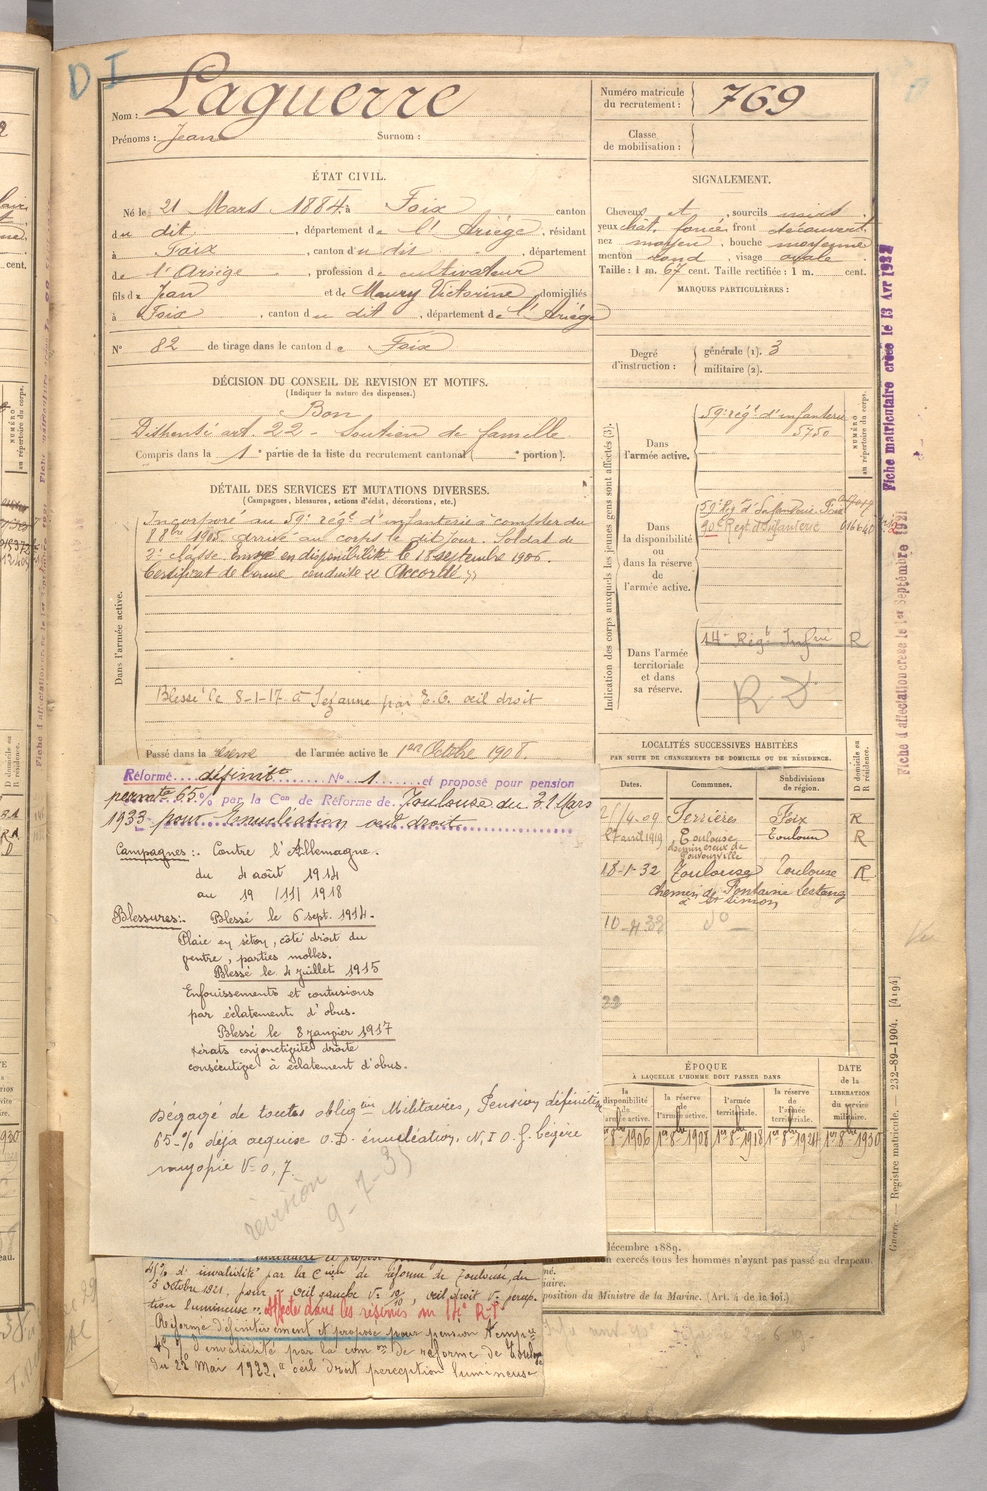 DI
Nom : Laguerre
Prénoms : Jean Surnom :
Numéro matricule du recrutement : 769
Classe de mobilisation :
ÉTAT CIVIL.
Né le 21 Mars 1884, à Foix canton
du dit, département de l'Ariège, résidant
à Foix, canton du dit, département
de l'Ariège, profession de cultivateur
fils de Jean et de Maury Victorine, domiciliés
à Foix, canton du dit, département de l'Ariège
N° 82 de tirage dans le canton de Foix
SIGNALEMENT.
Cheveux et, sourcils noirs
yeux chât. foncé front découvert
nez moyen, bouche moyenne
menton rond, visage ovale
Taille : 1 m. 67 cent. Taille rectifiée : 1 m. cent.
MARQUES PARTICULIÈRES :
Degré d'instruction : générale (1). 3
militaire (2).
DÉCISION DU CONSEIL DE REVISION ET MOTIFS.
(Indiquer la nature des dispenses.)
Bon
art. 22 - Soutien de famille
Compris dans la 1e partie de la liste du recrutement cantonal ( e portion).
DÉTAIL DES SERVICES ET MUTATIONS DIVERSES.
(Campagnes, blessures, actions d'éclat, décorations, etc.)
Dans l'armée active.
Incorporé au 59e régt d'infanterie à compter du
8 8bre 1905. arrivé au corps le dit jour. Soldat de
2e classe. envoyé en disponibilité le 18 septembre 1906.
Certificat de bonne conduite "Accordé"
Blessé le 8-1-17 à par E.O. œil droit
Passé dans la réserve de l'armée active le 1er Octobre 1908.
Indication des corps auxquels les jeunes gens sont affectés (3).
NUMÉRO au répertoire du corps.
Dans l'armée active.
59e régt d'infanterie
5750
Dans la disponibilité ou dans la réserve de l'armée active.
59e Régt d'Infanterie Foix
90e Régt d'Infanterie
Dans l'armée territoriale et dans sa réserve.
14e Régt Infrie R
RD
Fiche matriculaire créée le 13 Avr 1922
Fiche d'affectation créée le 1er Septembre 1921
LOCALITÉS SUCCESSIVES HABITÉES
PAR SUITE DE CHANGEMENTS DE DOMICILE OU DE RÉSIDENCE.
Dates. Communes. Subdivisions de région. D domicile ou R résidence.
2/4-09 Ferrières Foix R
27 avril 1919 Toulouse Toulouse R
18-1-32 Toulouse Toulouse R
chemin de Fontaine Lestang
à St Simon
do
Réformé définitt N° 1 et proposé pour pension
permte 65 % par la Con de Réforme de Toulouse du 21 Mars
1933 pour Enucléation œil droit
Campagnes : Contre l'Allemagne.
du 4 août 1914
au 19 /11/ 1918
Blessures : Blessé le 6 sept. 1914.
Plaie en séton, côté droit du
ventre, parties molles.
Blessé le 4 juillet 1915
Enfouissements et contusions
par éclatement d'obus.
Blessé le 8 janvier 1917
Kérato conjonctivite droite
consécutive à éclatement d'obus.
Dégagé de toutes obligtons Militaires, Pension définitive
65 % déjà acquise O.D. énucléation. N.I O.g. légère
myopie V=0,7.
révision
9-7-35
ÉPOQUE
À LAQUELLE L'HOMME DOIT PASSER DANS
la disponibilité de l'armée active. la réserve de l'armée active. l'armée territoriale. la réserve de l'armée territoriale. DATE de la LIBÉRATION du service militaire.
1er 8bre 1906 1er 8bre 1908 1er 8bre 1918 1er 8bre 1924 1er 8bre 1930
décembre 1889.
non exercés tous les hommes n'ayant pas passé au drapeau.
position du Ministre de la Marine. (Art. 4 de la loi.)
45% d'invalidité par la Cion de réforme de Toulouse du
3 Octobre 1921, pour œil gauche V= 10/10, œil droit V= percep-
tion lumineuse". affecté dans les réserves au 14e R.I
Réformé définitivement et proposé pour pension tempre
45 % d'invalidité par la comon de réforme de Toulouse
du 22 Mai 1922. œil droit perception lumineuse
Guerre. — Registre matricule. — 232-89-1904. [4194]